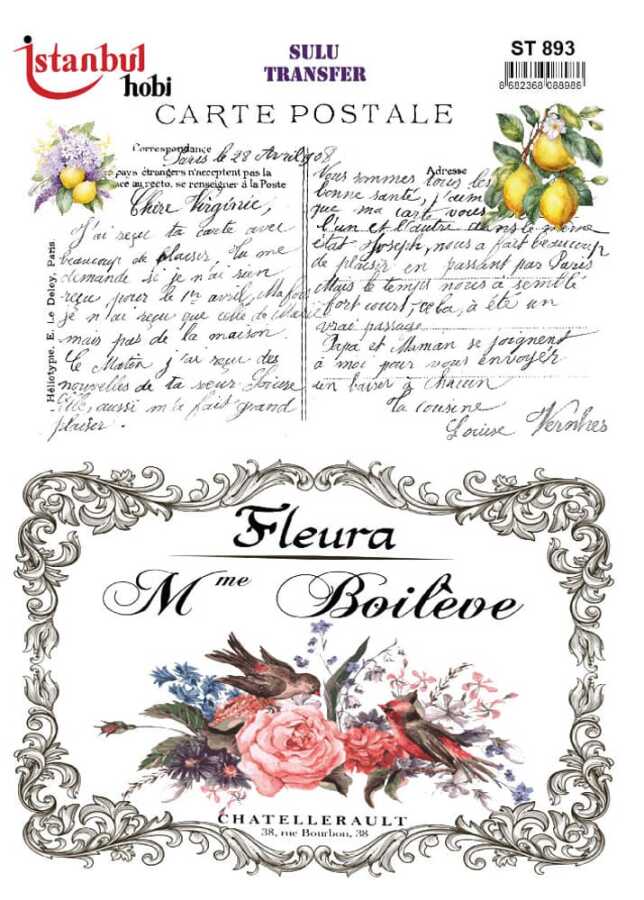 istanbul
hobi
SULU
TRANSFER
ST 893
8 682368 088986
CARTE POSTALE
Correspondance
Paris le 28 Avril 1908
pays étrangers n'acceptent pas la
au recto, se renseigner à la Poste
Adresse
Chère Virginie,
J'ai reçu ta carte avec
beaucoup de plaisir. Tu me
demande si je n'ai rien
reçu pour le 1er avril, Ma foi
je n'ai reçu que celle de Marie
mais pas de la maison.
Ce Matin j'ai reçu des
nouvelles de ta sœur Louise
elle, aussi m'a fait grand
plaisir.
Héliotypie, E. Le Deley, Paris
Vous sommes tous les
bonne santé, j'aime
que ma carte vous
l'un et l'autre dans le même
état Joseph, nous a fait beaucoup
de plaisir en passant par Paris
Mais le temps nous a semblé
fort court, cela, à été un
vrai passage
Papa et Maman se joignent
à moi pour vous envoyer
un baiser à chacun
Ta cousine
Louise Vernhes
Fleura
Mme Boilêve
CHATELLERAULT
38, rue Bourbon, 38